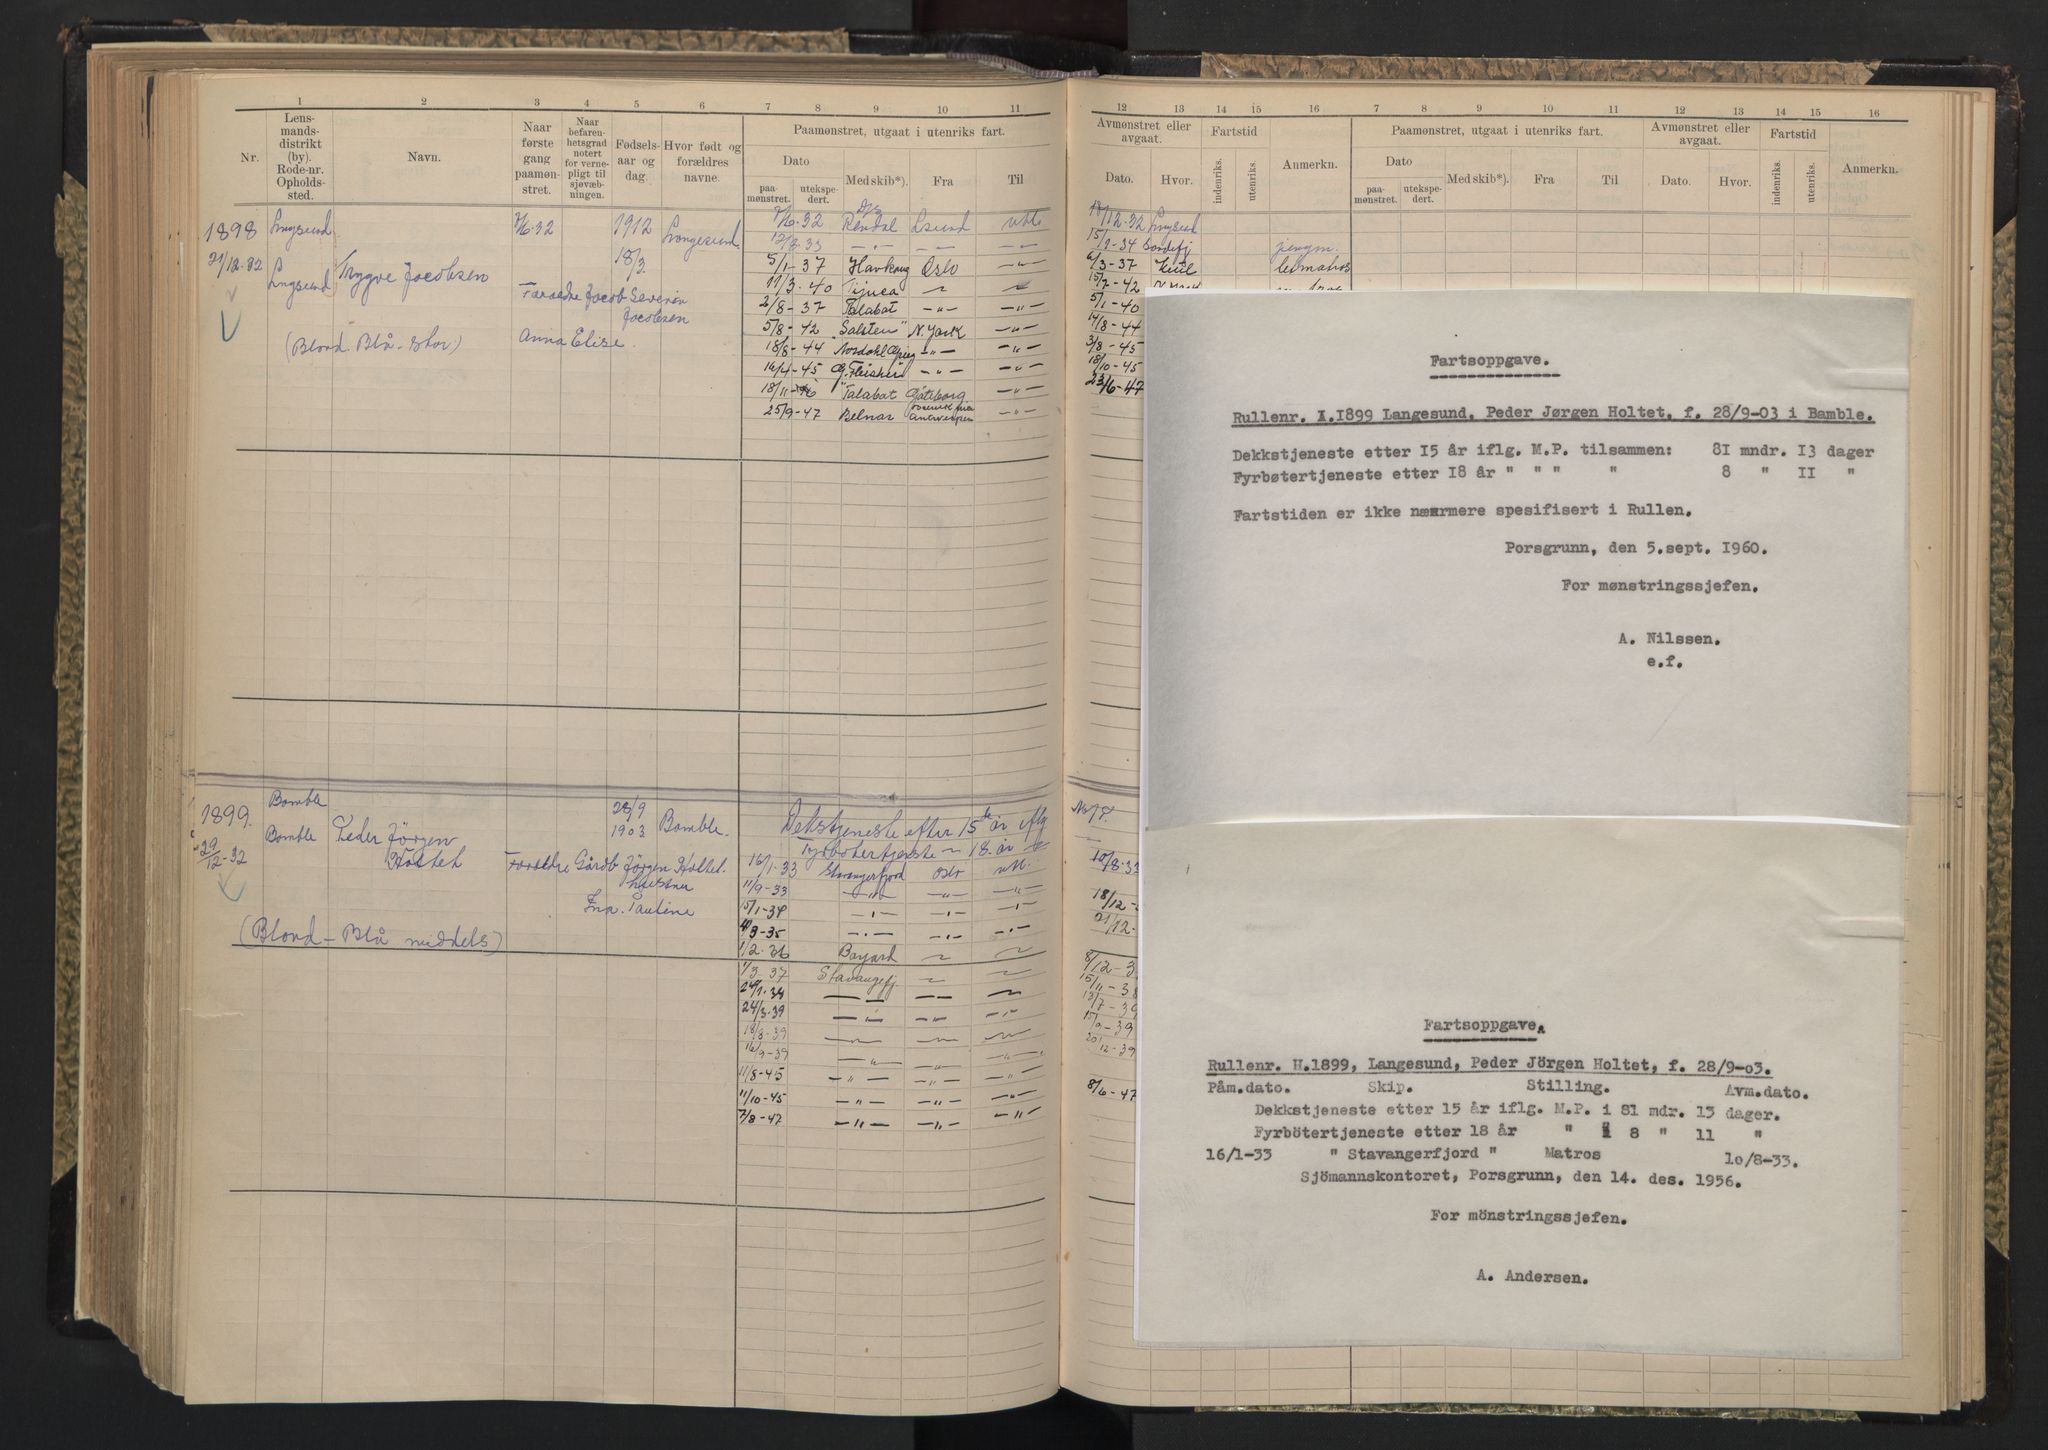 1 2 3 4 5 6 7 8 9 10 11
Nr.
Lens-
mands-
distrikt
(by).
Rode-nr.
Opholds-
sted.
Navn.
Naar
første
gang
paamøn-
stret.
Naar
befaren-
hetsgrad
notert
for verne-
pligt til
sjøvæb-
ningen.
Fødsels-
aar og
dag.
Hvor født og
forældres
navne.
Paamønstret, utgaat i utenriks fart.
Dato
paa-
mønstret.
utekspe-
dert.
Med skib*).
Fra
Til
1898 Lngsund 7/6.32 1912 Langesund 7/6.32 D/S Rendal Lsund utl
21/12.32 18/3 12/8.33 — " — — —
Lngsund Trygve Jacobsen 5/1-37 Havkong Oslo — " —
Foreldre Jacob Severin 11/3-40 Tijuca
Jacobsen 2/8-37 Talabat — " — — " —
(Blond. Blå. stor) Anna Elise. 5/8-42 "Salsten" N.York — " —
18/8-44 Nordahl Grieg — " — — " —
16/4-45 G. Fleischer — " — — " —
18/11-46 "Talabat Gøteborg — " —
25/9-47 Belnor Antwerpen — " —
1899. Bamble 28/9
29/12-32 Bamble Peder Jörgen 1903 Bamble. Dekstjeneste efter 15 de år iflg
Holtet Fyrbötertjenste — 18 år
Foreldre Gårdb Jörgen Holtet 16/1-33 Stavangerfjord Oslo utl.
hustru 11/9-33 — " — — " — — " —
Ina. Pauline 15/1-34 — " — — " — — " —
(Blond — Blå middels) 4/3-35 — " — — " — — " —
1/2-36 Bayard
1/3-37 Stavangefj.
24/1-38
24/3-39
18/8-39
16/9-39 — " —
11/8-45 — " — — " — — " —
11/10-45 — " — — " — — " —
7/8-47 — " — — " — — " —
12 13 14 15 16 7 8 9 10 11 12 13 14 15 16
Avmønstret eller
avgaat.
Dato. Hvor.
Fartstid
indenriks.
utenriks.
Anmerkn.
Paamønstret, utgaat i utenriks fart.
Dato
paa-
mønstret.
utekspe-
dert.
Med skib*).
Fra
Til
Avmønstret eller
avgaat.
Dato. Hvor.
Fartstid
indenriks.
utenriks.
Anmerkn.
17/12.32 Lngsund
15/1-34 Sandefj jungm.
6/3-37 Kiel letmatros
15/7-42
5/1-40
14/8-44
3/8-45
18/10-45
23/6-47
10/8.33
18/12
21/12.
8/12-3
15/11-38
13/7-39
15/9-39
20/12-39
8/6-47
Fartsoppgave.
Rullenr. A.1899 Langesund, Peder Jørgen Holtet, f. 28/9-03 i Bamble.
Dekkstjeneste etter 15 år iflg. M.P. tilsammen: 81 mndr. 13 dager
Fyrbøtertjeneste etter 18 år " " " " 8 " 11 "
Fartstiden er ikke nærmere spesifisert i Rullen.
Porsgrunn, den 5.sept. 1960.
For mønstringssjefen.
A. Nilssen.
e.f.
Fartsoppgave.
Rullenr. H.1899, Langesund, Peder Jörgen Holtet, f. 28/9-03.
Påm.dato. Skip. Stilling. Avm.dato.
Dekkstjeneste etter 15 år iflg. M.P. i 81 mdr. 13 dager.
Fyrbötertjeneste etter 18 år " " 8 " 11 "
16/1-33 " Stavangerfjord " Matros 10/8-33.
Sjömannskontoret, Porsgrunn, den 14. des. 1956.
For mönstringssjefen.
A. Andersen.